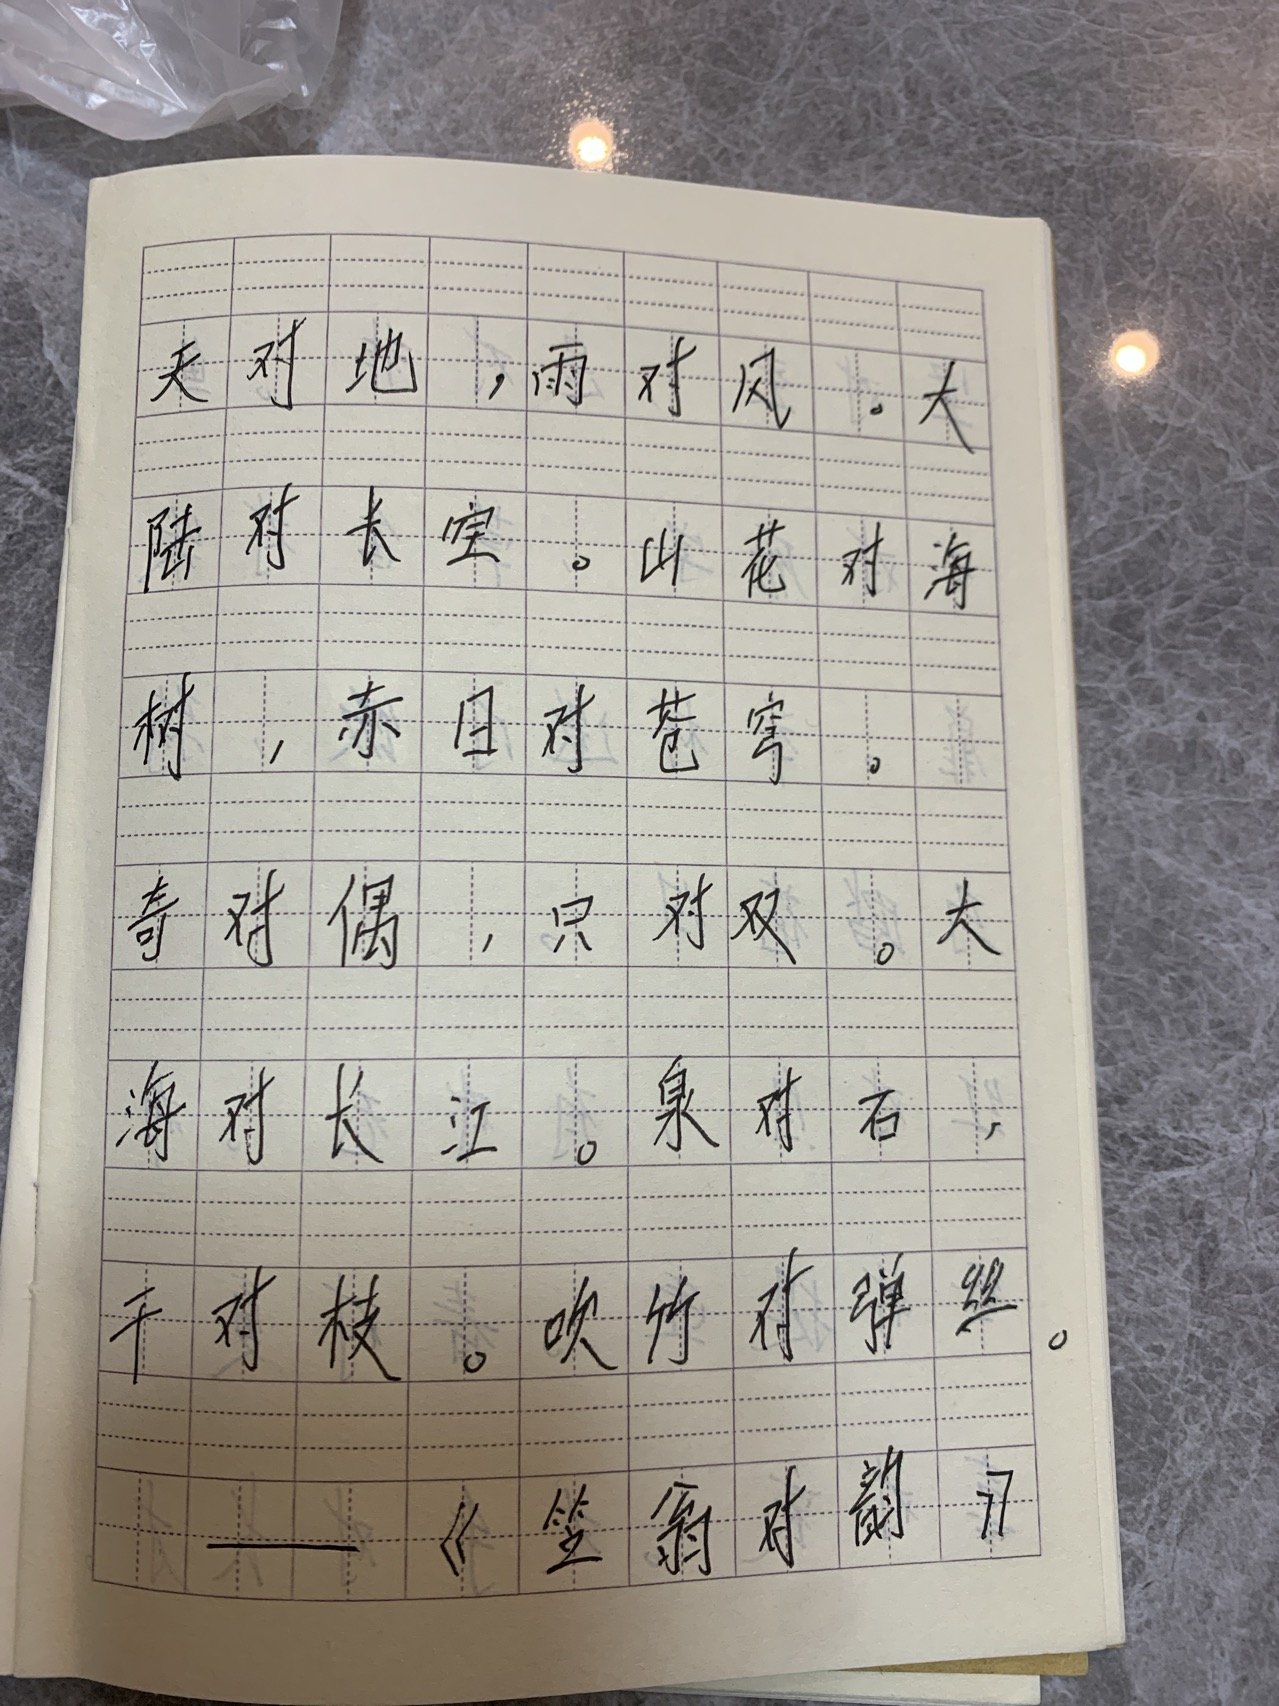 天对地，雨对风。大
陆对长空。山花对海
树，赤日对苍穹。
奇对偶，只对双。大
海对长江。泉对石，
干对枝。吹竹对弹丝。
——《笠翁对韵》